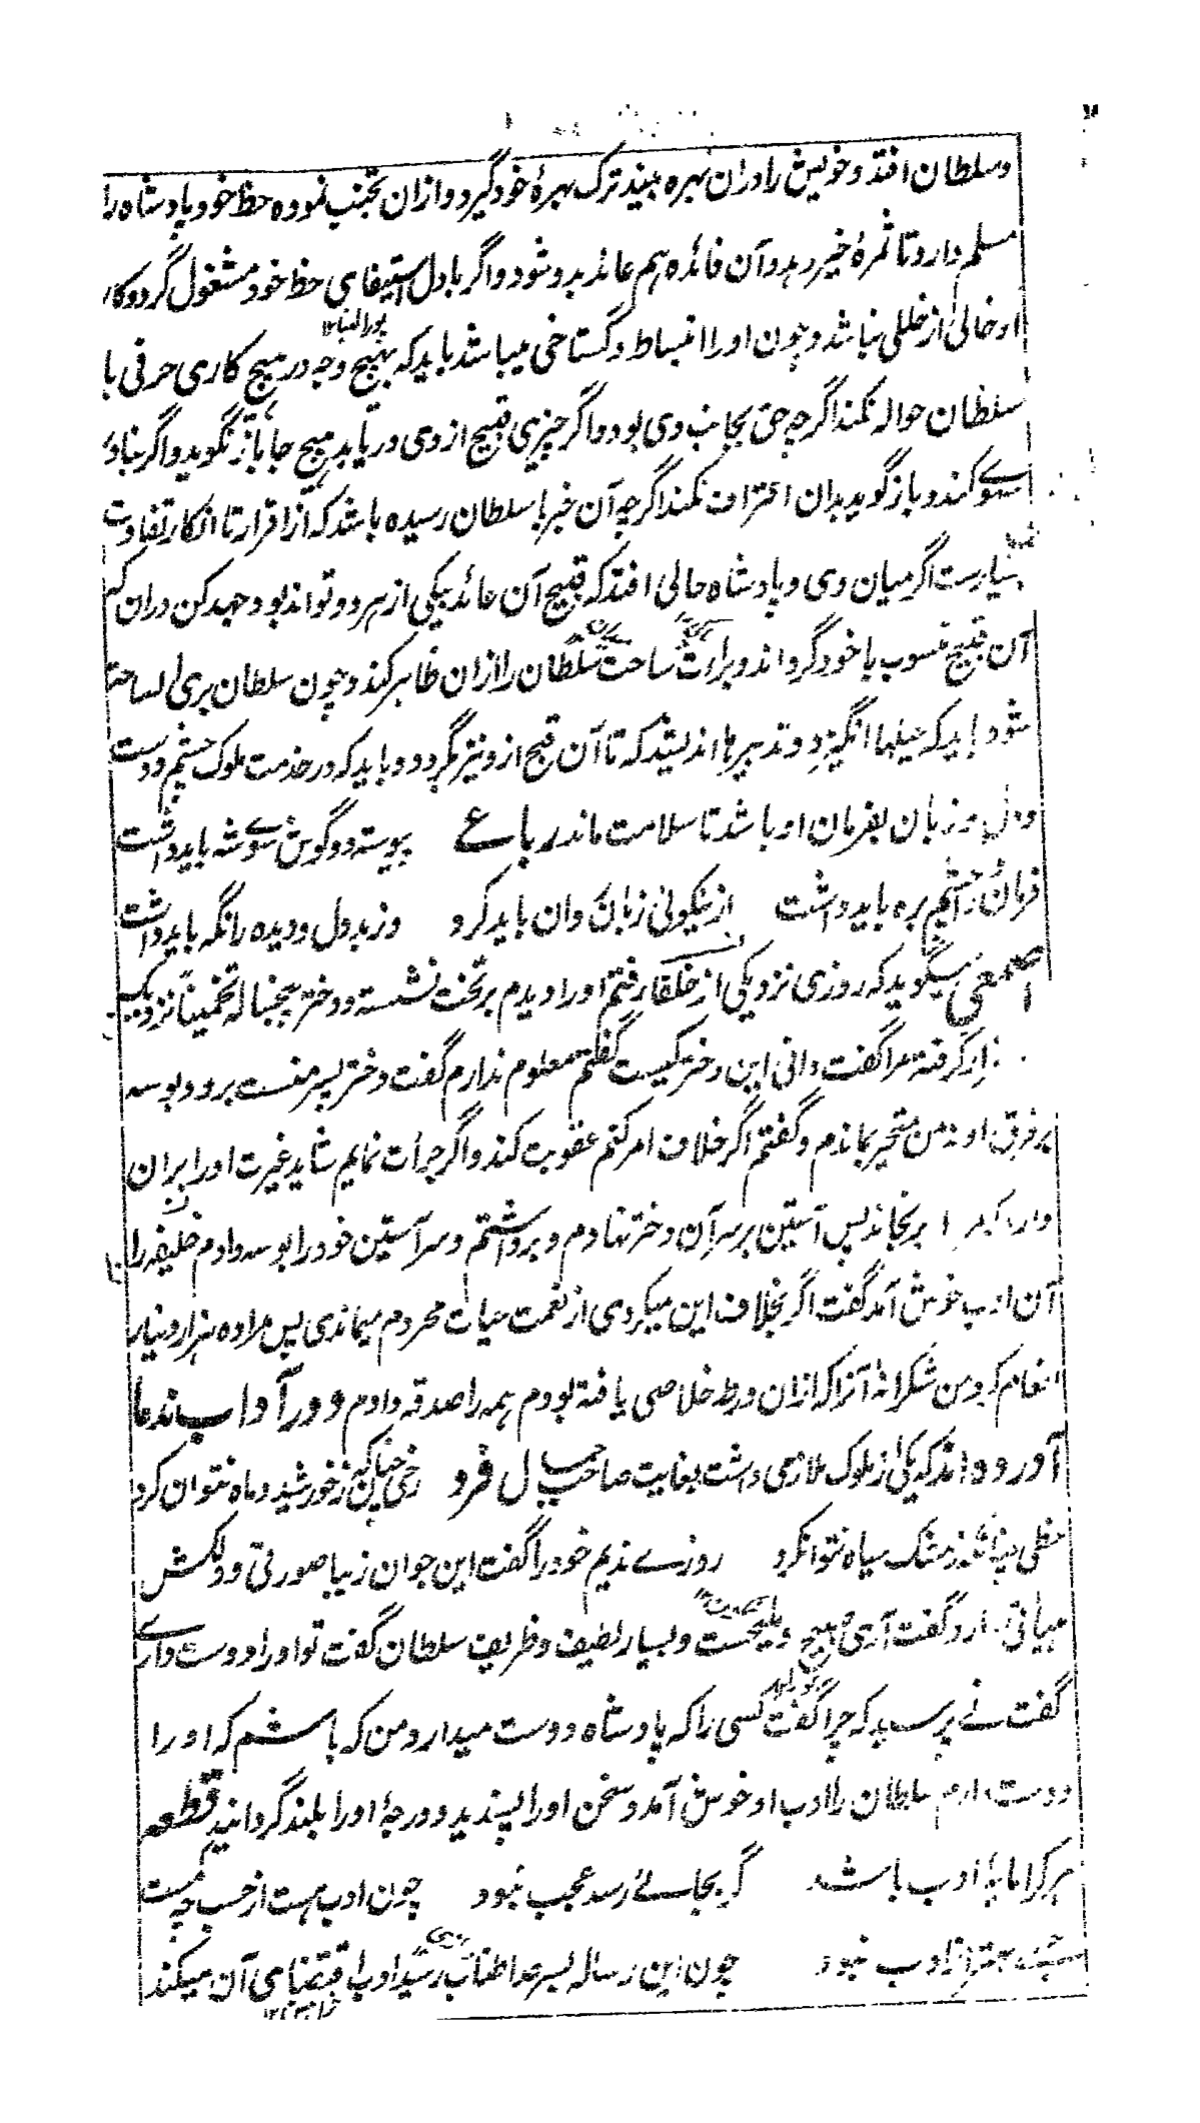 وسلطان افتد وخویش را دران بهره بیند ترک بهرهٔ خود گیرد و ازان تجنب نموده حظ خود پادشاه را
مسلم دارد تا ثمرهٔ خیر دهد و آن فائده هم عائد بدو شود و اگر بادل استیفای حظ خود مشغول گردد کار
او خالی از خللی نباشد و چون او را انبساط و گستاخی میباشد باید که بهیچ وجه در هیچ کاری حرفی با
سلطان حواله نکند اگرچه حق بجانب وی بود و اگر چیزی قبیح از وی دریابد هیچ جا باز نگوید و اگر بناد
سهوے کند و باز گوید بدان اعتراف نکند اگرچه آن خبر با سلطان رسیده باشد که از اقرار تا انکار تفاوت
بسیارست اگر میان وی و پادشاه حالی افتد که قبیح آن عائد بیکی از هر دو تواند بود جهد کن دران کہ
آن قبیح منسوب با خود گرداند و براءت ساحت سلطان را ازان ظاهر کند و چون سلطان بری الساحة
شود باید که حیلها انگیزد و تدبیرها اندیشد که تا آن قبح ازو نیز بگردد و باید که در خدمت ملوک چشم و دست
و دل و زبان بفرمان او باشد تا سلامت ماند رباعے پیوسته دو گوش سوے شه باید داشت
فرمان را چشم بره باید داشت از نیکوئی زبان روان باید کرد وز بد دل و دیده را نگه باید داشت
اصمعی میگوید که روزی نزد یکی از خلفا رفتم او را دیدم بر تخت نشسته و دختر پنجساله تخمیناً نزدیک
گرفته مرا گفت دانی این دختر کیست گفتم معلوم ندارم گفت دختر پسر منست برو و بوسه
بر فرق او ده من متحیر بماندم و گفتم اگر خلاف امر کنم عقوبت کند و اگر جرأت نمایم شاید غیرت او را بران
دارد که مرا برنجاند پس آستین بر سر آن دختر نهادم و برداشتم و سر آستین خود را بوسه دادم خلیفه را
آن ادب خوش آمد گفت اگر بخلاف این میکردی از نعمت حیات محروم میماندی پس مرا ده هزار دینار
انعام کرد من شکرانه آنرا که ازان ورطه خلاصی یافته بودم همه را صدقه دادم و در آداب ندما
آورده اند که یکی از ملوک ملازمی داشت بغایت صاحب جمال فرد رخی چنانکه ز خورشید و ماه نتوان کرد
خطی چنانکه ز مشک سیاه نتوانکرد روزے ندیم خود را گفت این جوان زیبا صورتی و دلکش
میانی دارد گفت آری صبیح و ملیحست و بسیار لطیف و ظریف سلطان گفت تو او را دوست داری
گفت نے پرسید که چرا گفت کسی را که پادشاه دوست میدارد من که باشم که او را
دوست دارم سلطان را ادب او خوش آمد و سخن او را پسندید و درجهٔ او را بلند گردانید قطعه
هر کرا مایهٔ ادب باشد گر بجائے رسد عجب نبود چون ادب هست از حسب چه کمست
حسبے بهتر از ادب نبود چون این رساله بسرحد اطناب رسید ادب اقتضای آن میکند